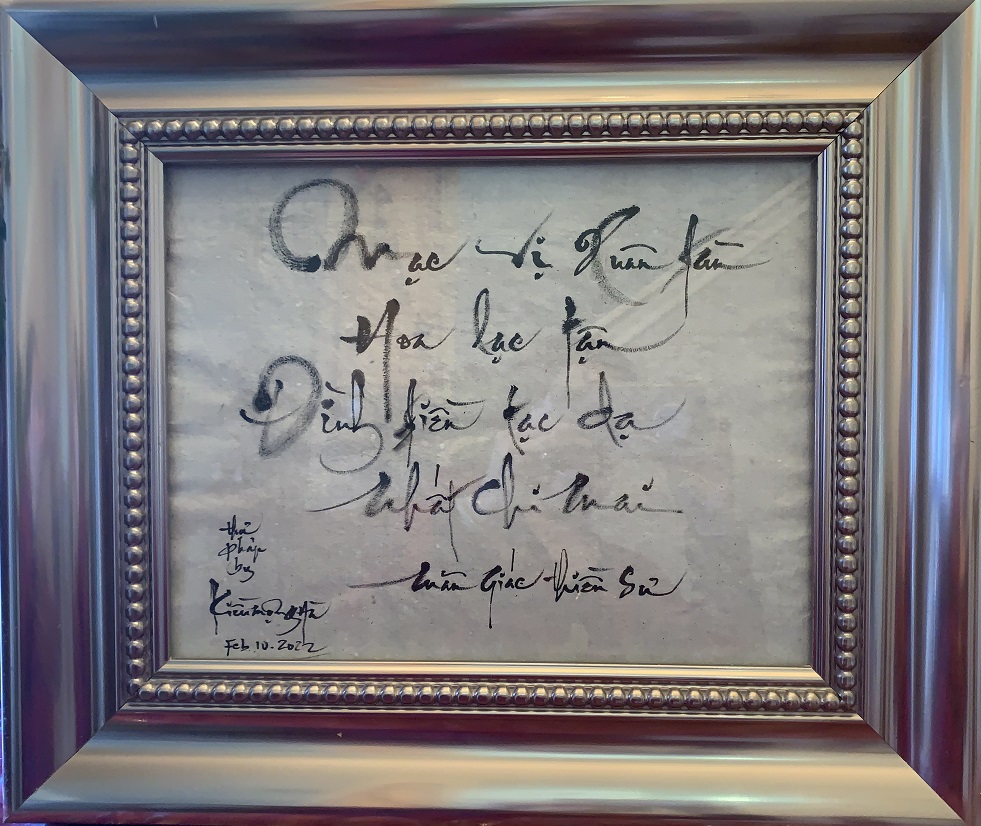 Mạc vị Xuân tàn
Hoa lạc tận
Đình tiền tạc dạ
nhất chi mai
Mãn Giác thiền Sư
thư
pháp
by
Kiều mộng Hà
Feb.10.2022